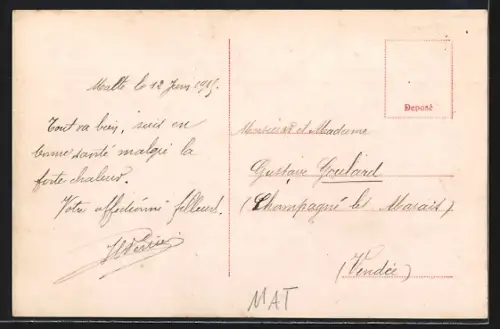 Malte le 12 Juin 1915.
Tout va bien, suis en
bonne santé malgré la
forte chaleur.
Votre affectionné filleul.
Deposé
Monsieur et Madame
Gustave Goulard
(Champagné les Marais)
(Vendée)
MAT